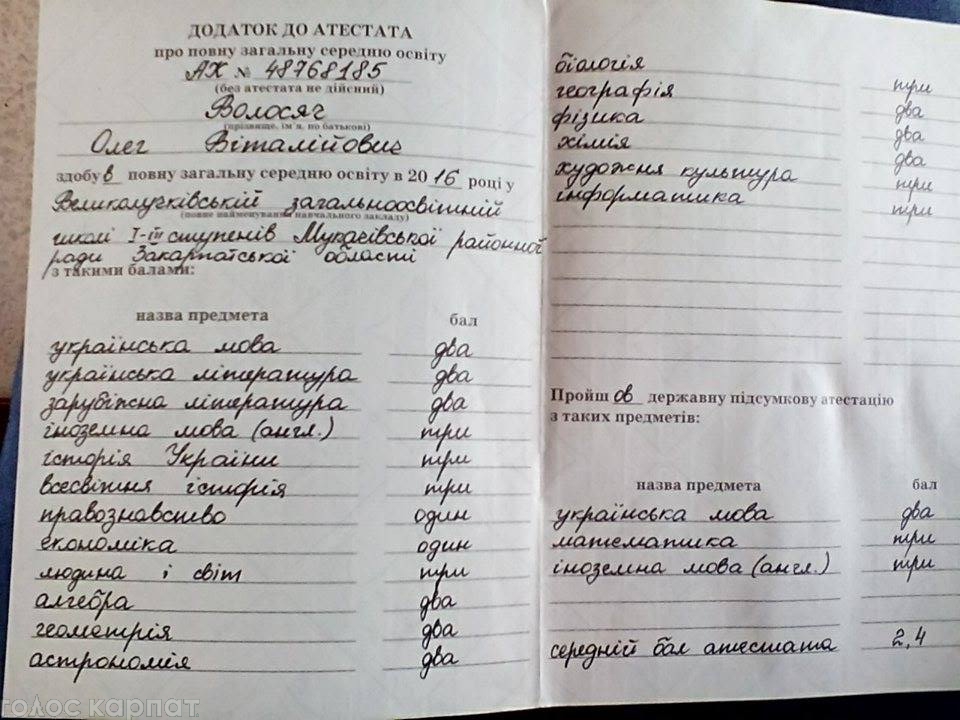 ДОДАТОК ДО АТЕСТАТА
про повну загальну середню освіту
АХ № 48768185
(без атестата не дійсний)
Волосяч
(прізвище, ім'я, по батькові)
Олег Віталійович
здобув повну загальну середню освіту в 2016 році у
Великолучківській загальноосвітній
(повне найменування навчального закладу)
школі І-ІІІ ступенів Мукачівської районної
ради Закарпатської області
з такими балами:
назва предмета бал
українська мова два
українська література два
зарубіжна література два
іноземна мова (англ.) три
історія України три
всесвітня історія три
правознавство один
економіка один
людина і світ три
алгебра два
геометрія два
астрономія два
біологія три
географія два
фізика два
хімія два
художня культура три
інформатика три
Пройшов державну підсумкову атестацію
з таких предметів:
назва предмета бал
українська мова два
математика три
іноземна мова (англ.) три
середній бал атестата 2,4
голос карпат